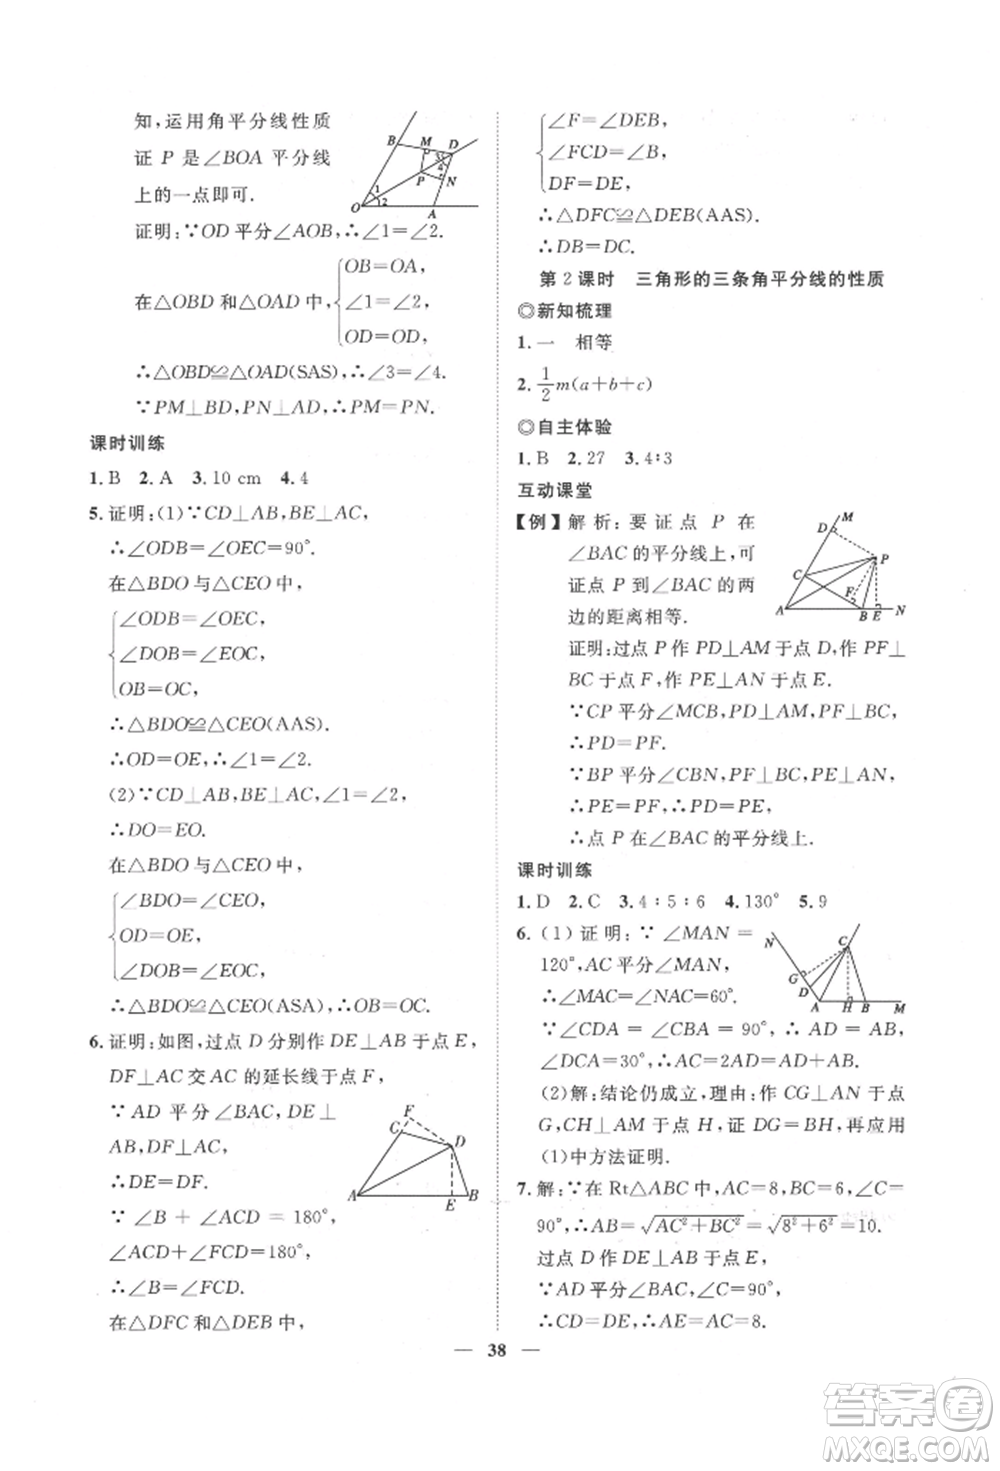 知,运用角平分线性质
证 P 是∠BOA 平分线
上的一点即可.
证明:∵OD 平分∠AOB,∴∠1=∠2.
在△OBD 和△OAD 中,
OB=OA,
∠1=∠2,
OD=OD,
∴△OBD≌△OAD(SAS).∴∠3=∠4.
∵PM⊥BD,PN⊥AD,∴PM=PN.
课时训练
1.B 2.A 3.10 cm 4.4
5.证明:(1)∵CD⊥AB,BE⊥AC,
∴∠ODB=∠OEC=90°.
在△BDO 与△CEO 中,
∠ODB=∠OEC,
∠DOB=∠EOC,
OB=OC,
∴△BDO≌△CEO(AAS).
∴OD=OE,∴∠1=∠2.
(2)∵CD⊥AB,BE⊥AC,∠1=∠2,
∴DO=EO.
在△BDO 与△CEO 中,
∠BDO=∠CEO,
OD=OE,
∠DOB=∠EOC,
∴△BDO≌△CEO(ASA).∴OB=OC.
6.证明:如图,过点 D 分别作 DE⊥AB 于点 E,
DF⊥AC 交 AC 的延长线于点 F,
∵ AD 平分∠BAC,DE⊥
AB,DF⊥AC.
∴DE=DF.
∵ ∠B + ∠ACD = 180°,
∠ACD+∠FCD=180°,
∴∠B=∠FCD.
在△DFC 和△DEB 中,
∠F=∠DEB,
∠FCD=∠B,
DF=DE,
∴△DFC≌△DEB(AAS).
∴DB=DC.
第 2 课时 三角形的三条角平分线的性质
◎新知梳理
1.一 相等
2.1/2m(a+b+c)
◎自主体验
1.B 2.27 3.4∶3
互动课堂
【例】解析:要证点 P 在
∠BAC 的平分线上,可
证点 P 到∠BAC 的两
边的距离相等.
证明:过点 P 作 PD⊥AM 于点 D,作 PF⊥
BC 于点 F,作 PE⊥AN 于点 E.
∵CP 平分∠MCB,PD⊥AM,PF⊥BC,
∴PD=PF.
∵BP 平分∠CBN,PF⊥BC,PE⊥AN,
∴PE=PF,∴PD=PE,
∴点 P 在∠BAC 的平分线上.
课时训练
1.D 2.C 3.4∶5∶6 4.130° 5.9
6.(1)证明:∵∠MAN =
120°,AC 平分∠MAN,
∴∠MAC=∠NAC=60°.
∵∠CDA = ∠CBA = 90°,∴ AD = AB,
∠DCA=30°,∴AC=2AD=AD+AB.
(2)解:结论仍成立,理由:作 CG⊥AN 于点
G,CH⊥AM 于点 H,证 DG=BH,再应用
(1)中方法证明.
7.解:∵在 Rt△ABC 中,AC=8,BC=6,∠C=
90°,∴AB=√AC²+BC²=√8²+6²=10.
过点 D 作 DE⊥AB 于点 E.
∵AD 平分∠BAC,∠C=90°,
∴CD=DE,∴AE=AC=8.
38
答案卷
MXQE.COM